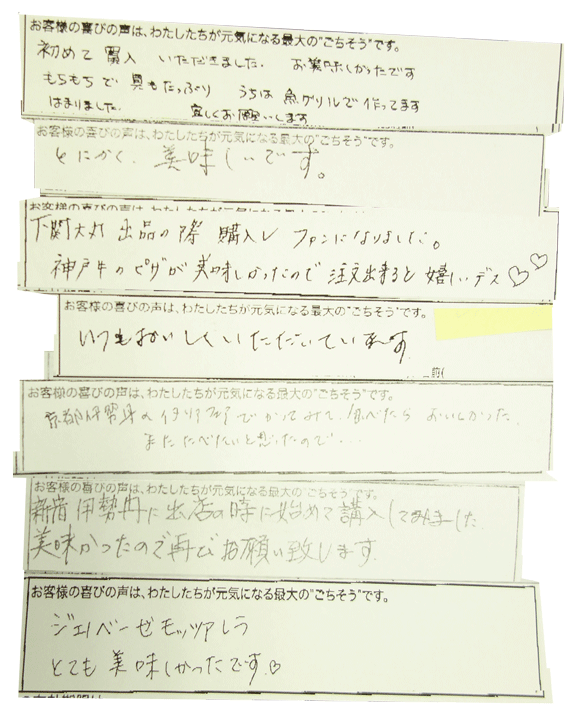 お客様の喜びの声は、わたしたちが元気になる最大の"ごちそう"です。
初めて購入 いただきました. お美味しかったです
もちもちで 具もたっぷり うちは魚グリルで作ってます
はまりました. 宜しくお願いします
お客様の喜びの声は、わたしたちが元気になる最大の"ごちそう"です。
とにかく、美味しいです。
お客様の喜びの声は、わたしたちが元気になる最大の"ごちそう"です。
下関大丸 出品の際 購入し ファンになりました。
神戸牛のピザが美味しかったので 注文出来ると嬉しいデス♡♡
お客様の喜びの声は、わたしたちが元気になる最大の"ごちそう"です。
いつもおいしくいただいています
お客様の喜びの声は、わたしたちが元気になる最大の"ごちそう"です。
京都伊勢丹のイタリア でかってみて、食べたら おいしかった.
またたべたいと思ったので...
お客様の喜びの声は、わたしたちが元気になる最大の"ごちそう"です。
新宿伊勢丹に出店の時に始めて購入してみました
美味かったので再びお願い致します.
お客様の喜びの声は、わたしたちが元気になる最大の"ごちそう"です。
ジェノベーゼモッツアレラ
とても美味しかったです♡